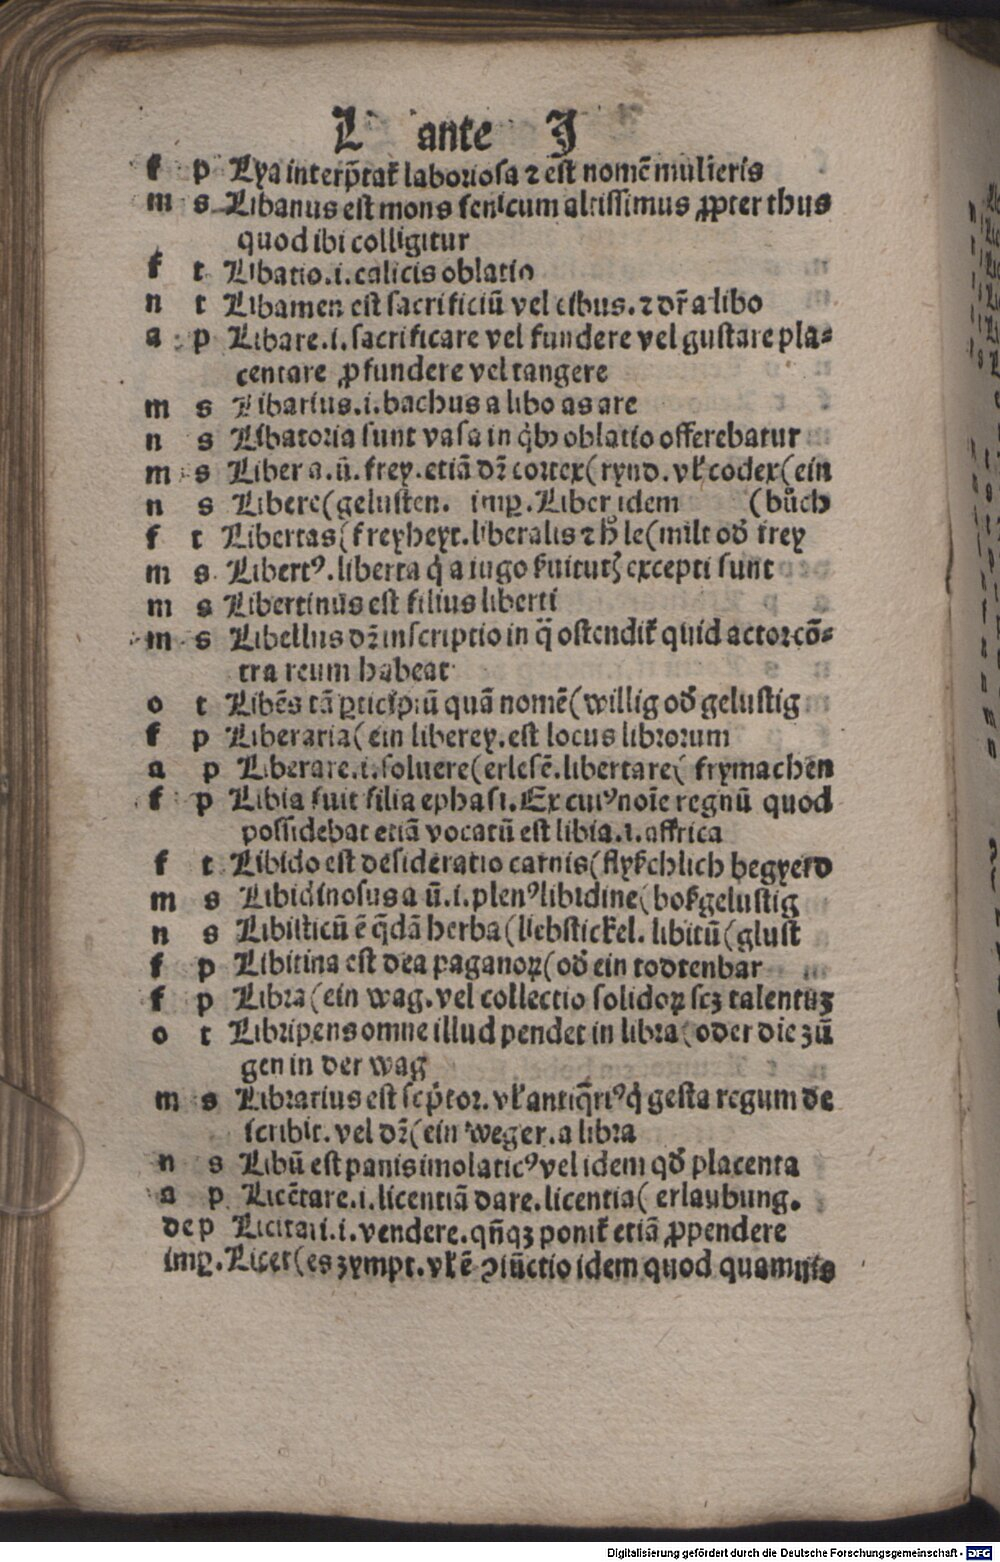 L ante J
f p Lya interp̄taƭ laboriosa ⁊ est nomē mulieris
m s Libanus est mons fenicum altissimus ꝓpter thus
quod ibi colligitur
f t Libatio.i.calicis oblatio
n t Libamen est sacrificiū vel cibus.⁊ dr̄ a libo
a p Libare.i.sacrificare vel fundere vel gustare pla⸗
centare ꝓfundere vel tangere
m s Libarius.i.bachus a libo as are
n s Libatoria sunt vasa in qͥbꝰ oblatio offerebatur
m s Liber a.ū.frey.etiā dꝛ̄ cortex(rynd.vꝉ codex(ein
n s Libere(gelusten. imꝑ.Liber idem (bůch
f t Libertas(freyheyt.liberalis ⁊ ħ le(milt oď frey
m s Libertꝰ.liberta qͥ a iugo ẜuitutꝭ excepti sunt
m s Libertinus est filius liberti
m s Libellus dꝛ̄ inscriptio in q̄ ostendiƭ quid actor cō⸗
tra reum habeat
o t Libēs tā ꝑticipiū quā nomē(willig oď gelustig
f p Liberaria(ein liberey.est locus librorum
a p Liberare.i.soluere(erlesē.libertare(frymachen
f p Libia fuit filia ephasi.Ex cuiꝰ noīe regnū quod
possidebat etiā vocatū est libia.i.affrica
f t Libido est desideratio carnis(flyſchlich begyerd
m s Libidinosus a ū.i.plenꝰ libidine(boßgelustig
n s Libisticū ē q̄dā herba(liebstickel.libitū(glust
f p Libitina est dea paganoꝝ(oď ein todtenbar
f p Libra(ein wag.vel collectio solidoꝝ scꝫ talentuꝫ
o t Libripens omne illud pendet in libra(oder die zū
gen in der wag
m s Librarius est scp̄tor.vꝉ antiq̄riꝰ qͥ gesta regum de
scribit.vel dꝛ̄(ein weger.a libra
n s Libū est panis imolaticꝰ vel idem qď placenta
a p Licētare.i.licentiā dare.licentia(erlaubung.
de p Licitari.i.vendere.qn̄qꝫ poniƭ etiā ꝓpendere
imꝑ.Licet(es zympt.vꝉ ē ꝯiūctio idem quod quamuis
Digitalisierung gefördert durch die Deutsche Forschungsgemeinschaft - DFG